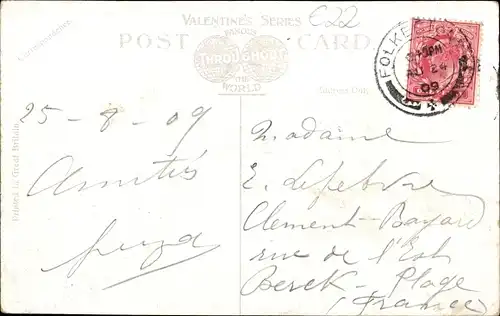 VALENTINE'S SERIES
E22
POST CARD.
FAMOUS
THROUGHOUT
THE
WORLD
Correspondence.
Address Only.
Printed in Great Britain
FOLKESTONE
AU 24
09
25-8-09
Amitiés
Madame
E. Lefebvre
Clement-Bayard
rue de l'Est
Berck-Plage
(France)